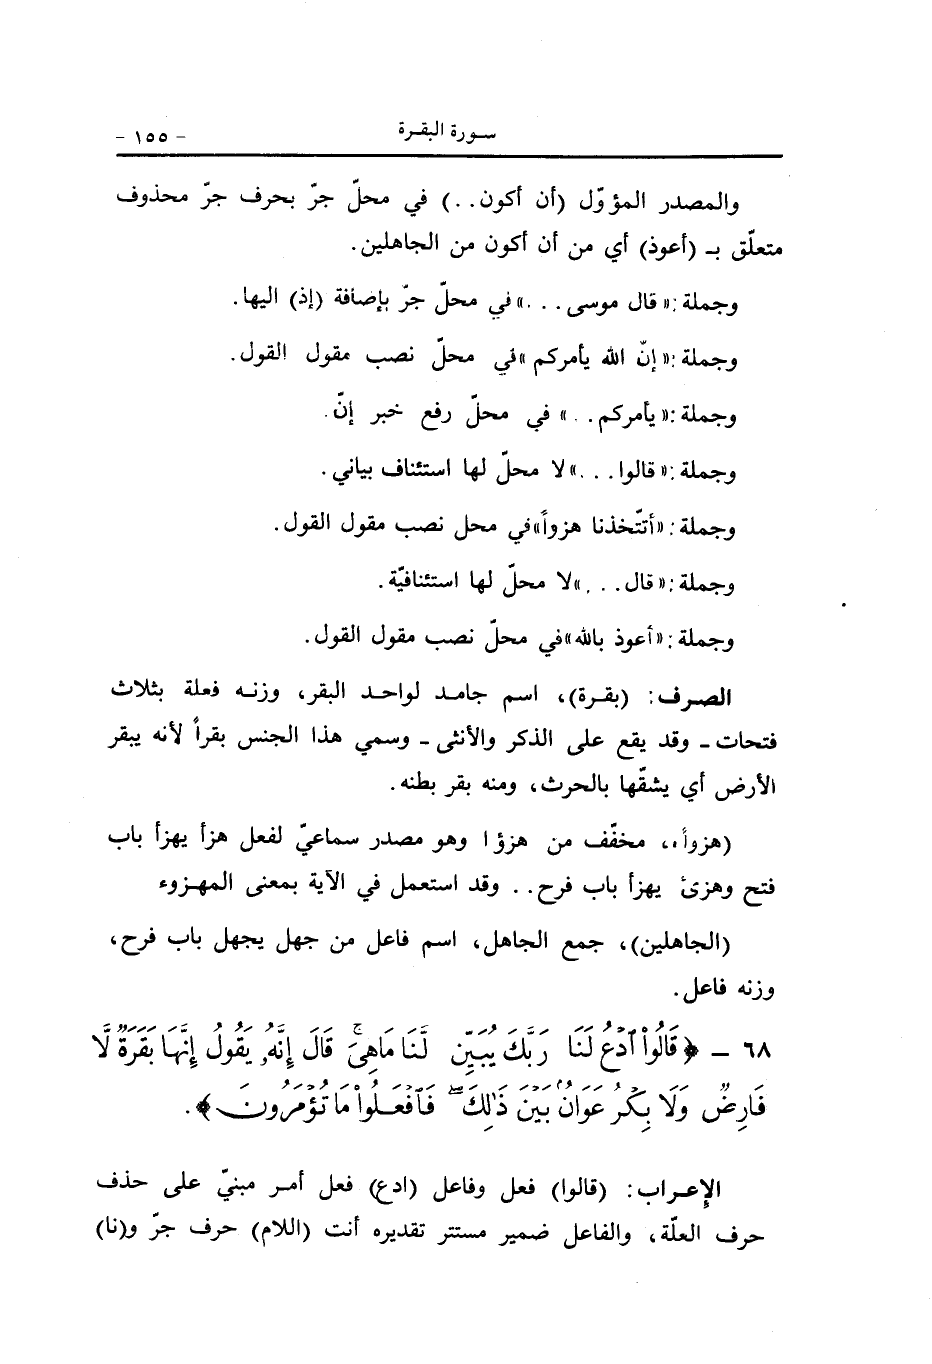 سورة البقرة - ١٥٥ -
والمصدر المؤوّل (أن أكون . .) في محلّ جرّ بحرف جرّ محذوف
متعلّق بـ (أعوذ) أي من أن أكون من الجاهلين.
وجملة: «قال موسى . . .» في محلّ جرّ بإضافة (إذ) اليها.
وجملة: «إنّ الله يأمركم» في محلّ نصب مقول القول.
وجملة: «يأمركم . .» في محلّ رفع خبر إنّ.
وجملة: «قالوا . . .» لا محلّ لها استئناف بياني.
وجملة: «أتتّخذنا هزواً» في محل نصب مقول القول.
وجملة: «قال . . .» لا محلّ لها استئنافيّة.
وجملة: «أعوذ بالله» في محلّ نصب مقول القول.
الصرف: (بقرة)، اسم جامد لواحد البقر، وزنه فعلة بثلاث
فتحات - وقد يقع على الذكر والأنثى - وسمي هذا الجنس بقراً لأنه يبقر
الأرض أي يشقّها بالحرث، ومنه بقر بطنه.
(هزواً)، مخفّف من هزؤا وهو مصدر سماعيّ لفعل هزأ يهزأ باب
فتح وهزئ يهزأ باب فرح . . وقد استعمل في الآية بمعنى المهزوء
(الجاهلين)، جمع الجاهل، اسم فاعل من جهل يجهل باب فرح،
وزنه فاعل.
٦٨ - ﴿قَالُواْ ٱدْعُ لَنَا رَبَّكَ يُبَيِّن لَّنَا مَا هِىَ ۚ قَالَ إِنَّهُۥ يَقُولُ إِنَّهَا بَقَرَةٌ لَّا
فَارِضٌ وَلَا بِكْرٌ عَوَانٌۢ بَيْنَ ذَٰلِكَ ۖ فَٱفْعَلُواْ مَا تُؤْمَرُونَ﴾.
الإعراب: (قالوا) فعل وفاعل (ادع) فعل أمر مبنيّ على حذف
حرف العلّة، والفاعل ضمير مستتر تقديره أنت (اللام) حرف جرّ و(نا)